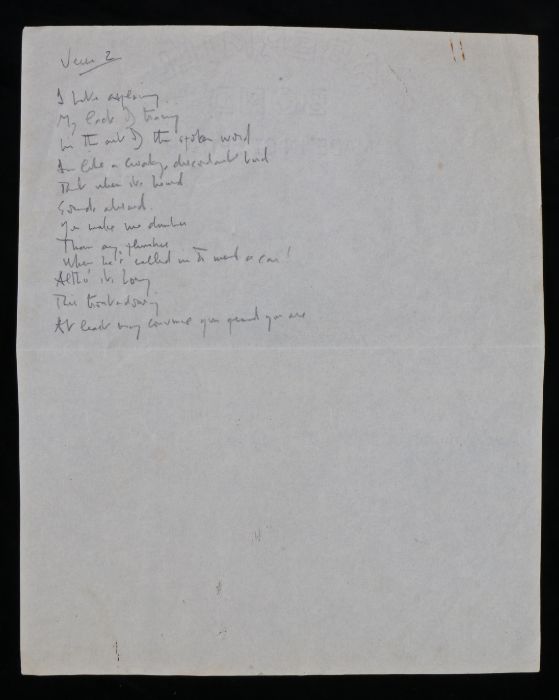 Verse 2
I hate explaining
My lack of training
In the art of the spoken word
I'm like a croaky, discordant bird
That when it's heard
Sounds absurd.
You make me dumber
Than any plumber
When he's called in to mend a car!
Altho' it's boring
This troubadouring
At least may convince you grand you are